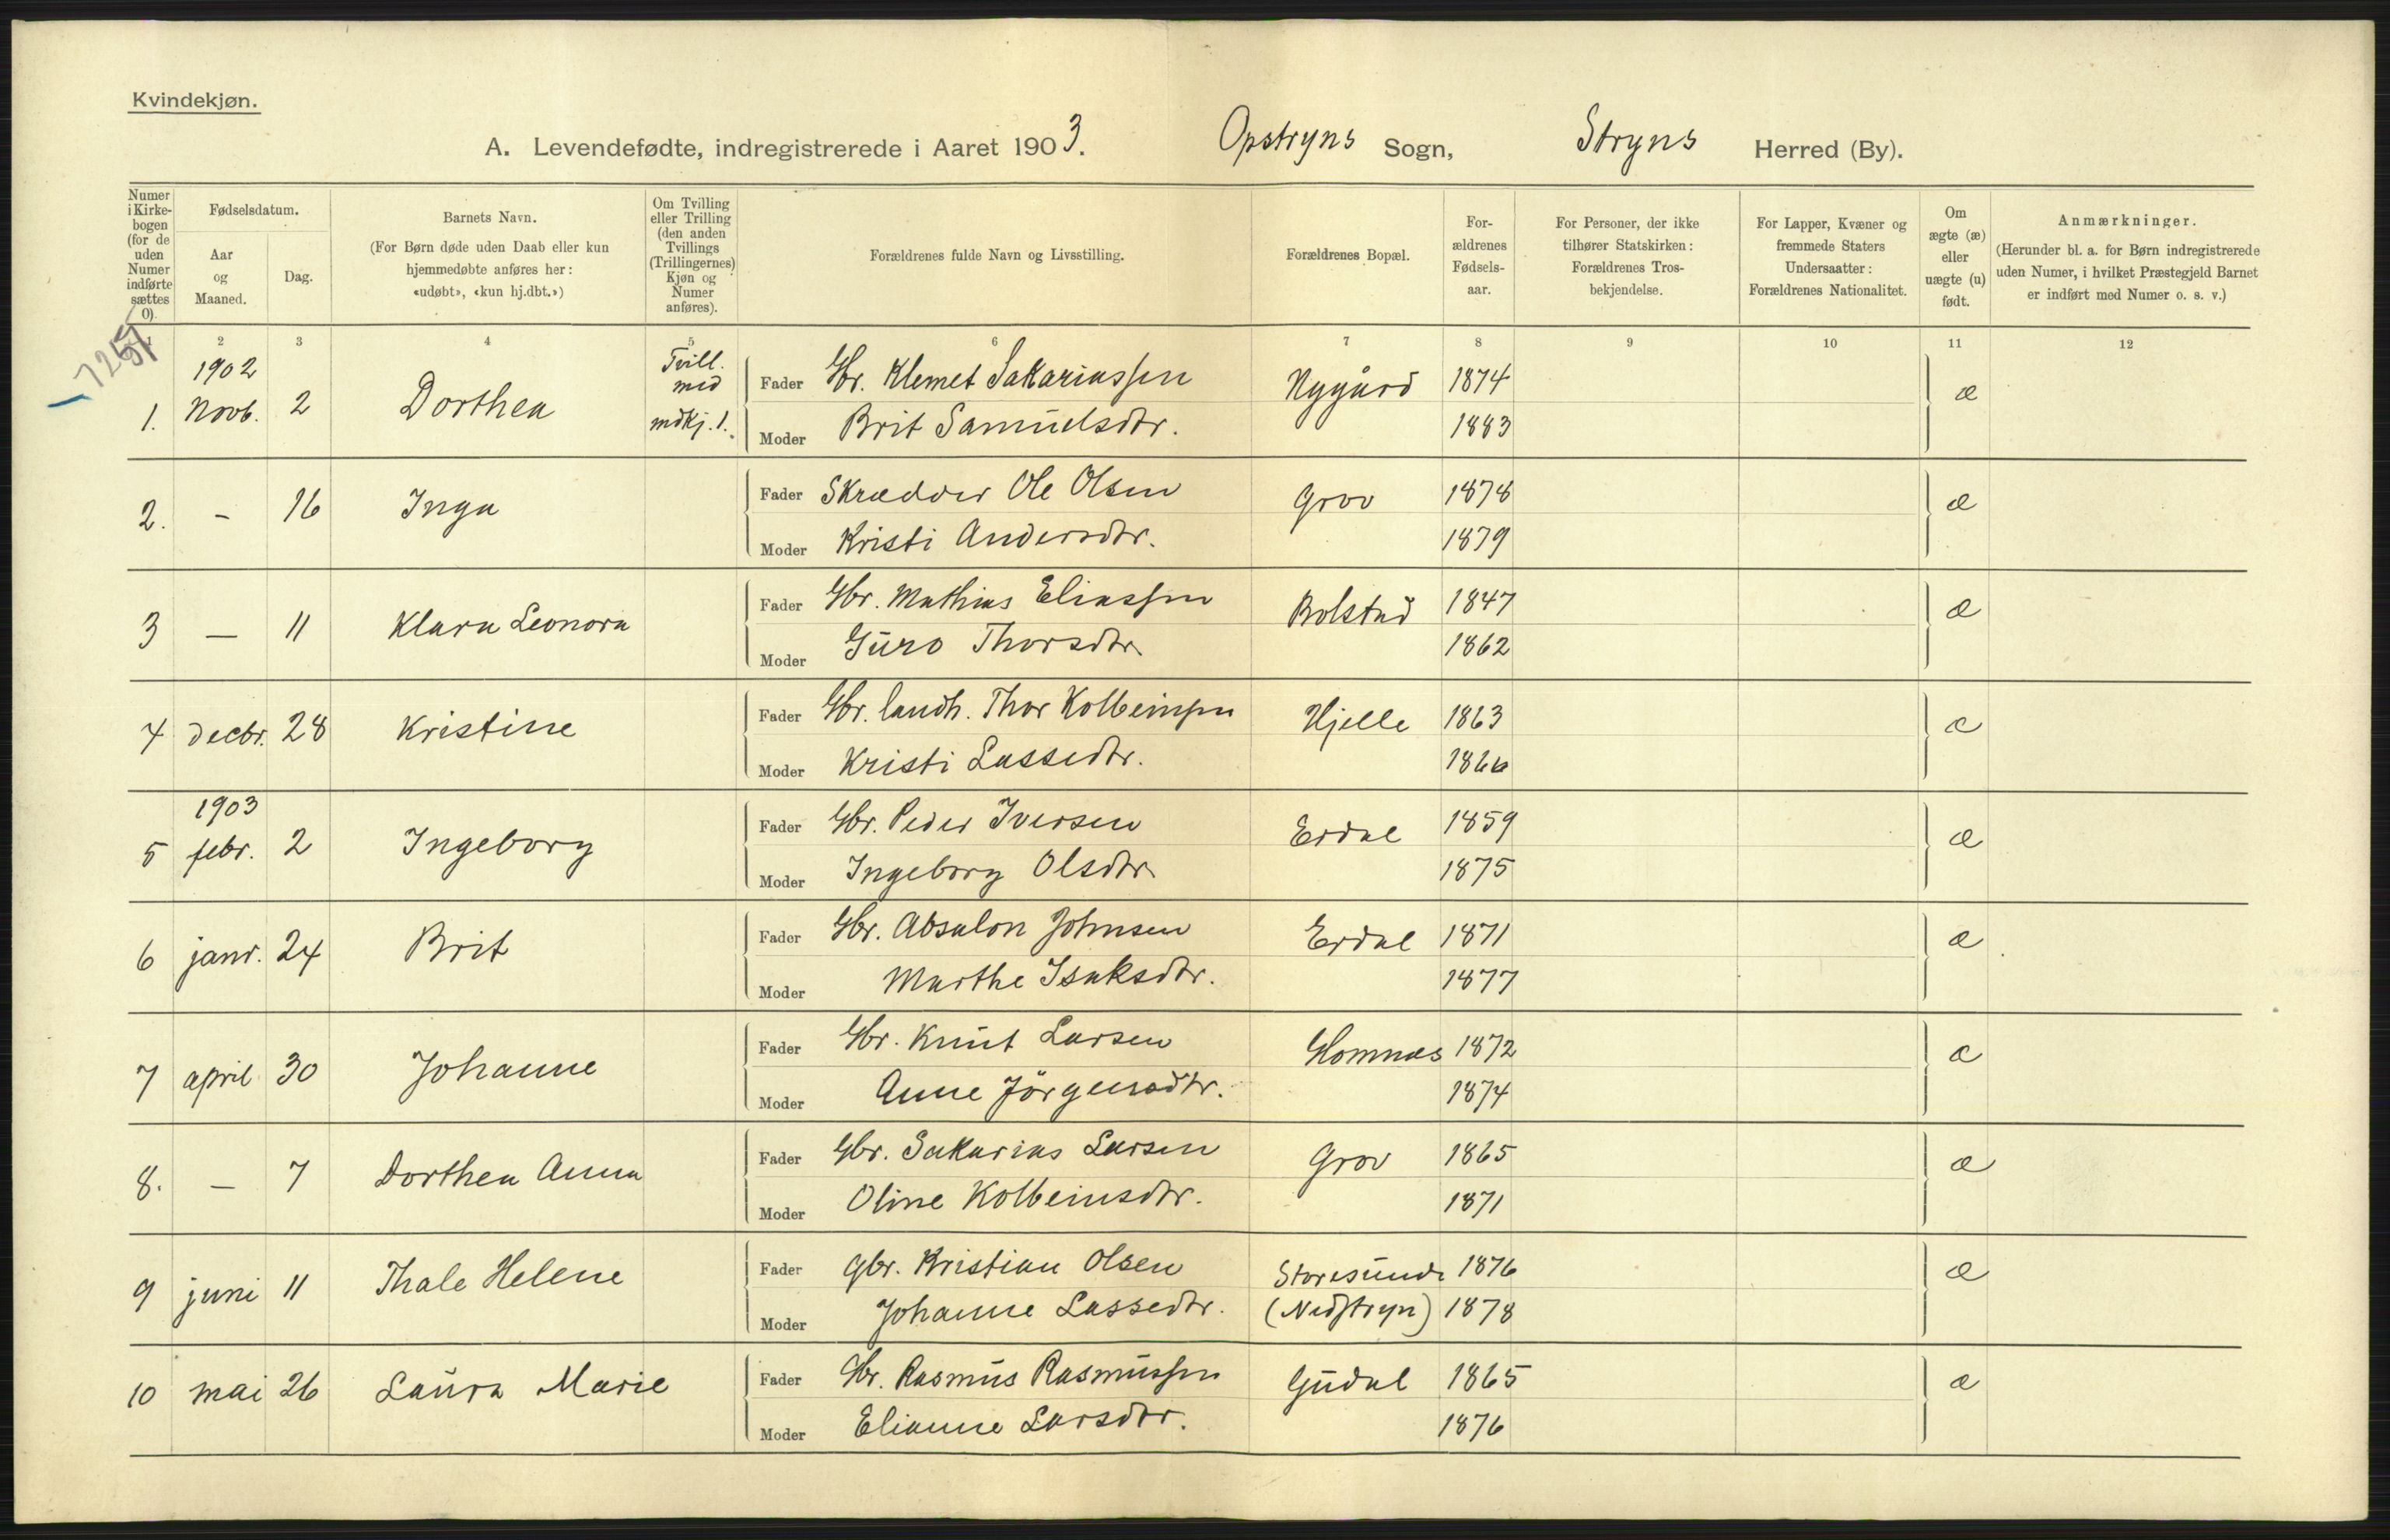 Kvindekjøn.
A. Levendefødte, indregistrerede i Aaret 1903. Opstryns Sogn, Stryns Herred (By).
Numer i Kirkebogen (for de uden Numer indførte sættes 0).
Fødselsdatum.
Aar og Maaned.
Dag.
Barnets Navn.
(For Børn døde uden Daab eller kun
hjemmedøbte anføres her:
«udøbt», «kun hj.dbt.»)
Om Tvilling
eller Trilling
(den anden
Tvillings
(Trillingernes)
Kjøn og
Numer
anføres).
Forældrenes fulde Navn og Livsstilling.
Forældrenes Bopæl.
For-
ældrenes
Fødsels-
aar.
For Personer, der ikke
tilhører Statskirken:
Forældrenes Tros-
bekjendelse.
For Lapper, Kvæner og
fremmede Staters
Undersaatter:
Forældrenes Nationalitet.
Om
ægte (æ)
eller
uægte (u)
født.
Anmærkninger.
(Herunder bl. a. for Børn indregistrerede
uden Numer, i hvilket Præstegjeld Barnet
er indført med Numer o. s. v.)
1 2 3 4 5 6 7 8 9 10 11 12
1902 Tvill. med Fader Gbr. Klemet Sakariassen Nygård 1874
1. Novb. 2 Dorthea mdkj. 1. Moder Brit Samuelsdtr. 1883 æ
Fader Skrædder Ole Olsen Grov 1878
2. - 16 Inga Moder Kristi Andersdtr. 1879 æ
Fader Gbr. Mathias Eliassen Bolstad 1847
3 — 11 Klara Leonora Moder Guro Thorsdtr. 1862 æ
Fader Gbr. landh. Thor Kolbeinsen Hjelle 1863
4 decbr. 28 Kristine Moder Kristi Lassedtr. 1866 æ
1903 Fader Gbr. Peder Iversen Erdal 1859
5 febr. 2 Ingeborg Moder Ingeborg Olsdtr. 1875 æ
Fader Gbr. Absalon Johnsen Erdal 1871
6 janr. 24 Brit Moder Marthe Isaksdtr. 1877 æ
Fader Gbr. Knut Larsen Glomnes 1872
7 april 30 Johanne Moder Anne Jörgensdtr. 1874 æ
Fader Gbr. Sakarias Larsen Grov 1865
8. — 7 Dorthea Anna Moder Oline Kolbeinsdtr. 1871 æ
Fader Gbr. Kristian Olsen Storesunde 1876
9 juni 11 Thale Helene Moder Johanne Lassedtr. (Nedstryn) 1878 æ
Fader Gbr. Rasmus Rasmussen Gudal 1865
10 mai 26 Laura Marie Moder Elianne Larsdtr. 1876 æ